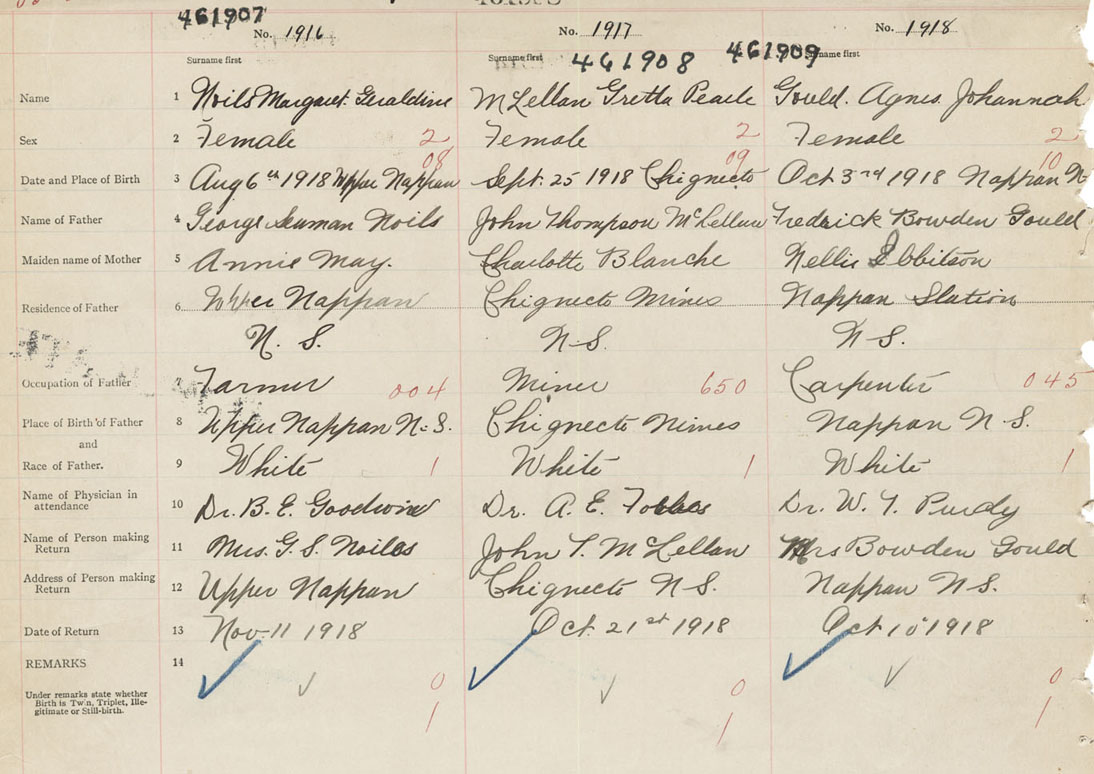 461907
No. 1916
No. 1917
No. 1918
Surname first
Surname first
461908
461909
Surname first
Name 1 Noils Margaret. Geraldine
McLellan Gretta Pearle
Gould. Agnes Johannah
Sex 2 Female 2
Female 2
Female 2
08
09
10
Date and Place of Birth 3 Aug 6th 1918 Upper Nappan
Sept. 25 1918 Chignecto
Oct 3rd 1918 Nappan N
Name of Father 4 George Seaman Noils
John Thompson McLellan
Fredrick Bowden Gould
Maiden name of Mother 5 Annie May.
Charlotte Blanche
Nellie Ibbitson
Residence of Father 6 Upper Nappan
Chignecto Mines
Nappan Station
N. S.
N-S.
N-S.
Occupation of Father 7 Farmer 004
Miner 650
Carpenter 045
Place of Birth of Father 8 Upper Nappan N-S.
Chignecto Mines
Nappan N-S.
and
Race of Father. 9 White 1
White 1
White 1
Name of Physician in
attendance 10 Dr. B. E. Goodwin
Dr. A. E. Forbes
Dr. W. T. Purdy
Name of Person making
Return 11 Mrs. G. S. Noiles
John T. McLellan
Mrs Bowden Gould
Address of Person making
Return 12 Upper Nappan
Chignecto N-S.
Nappan N-S.
Date of Return 13 Nov-11 1918
Oct. 21st 1918
Oct 10 1918
REMARKS 14
Under remarks state whether
Birth is Twin, Triplet, Ille-
gitimate or Still-birth.
0
0
0
1
1
1